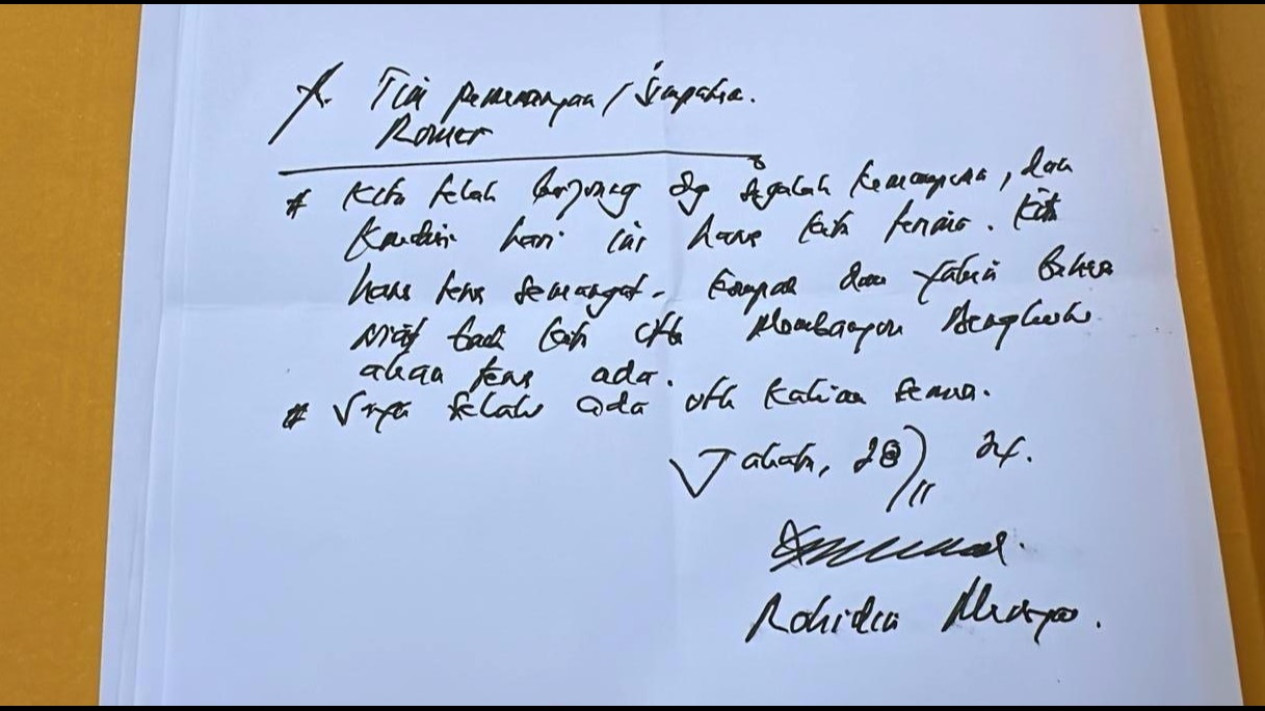 Tim pemenangan / Simpatisan.
Romer
# Kita telah berjuang dg segalah kemampuan, dan
hari ini harus kita terima. Kita
harus terus semangat. Kompak dan yakin bahwa
niat baik kita utk Membangun Bengkulu
akan terus ada.
# Saya selalu ada utk kalian semua.
Jakarta, 28/11 24.
Rohidin Mersyah.